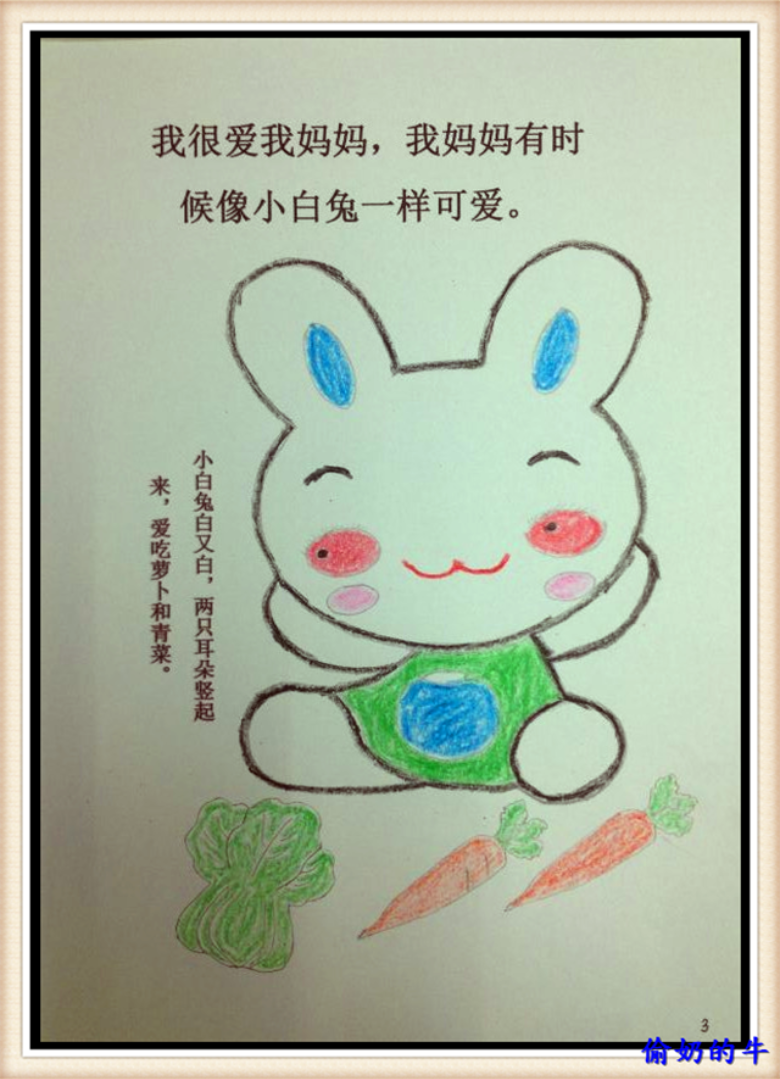 我很爱我妈妈，我妈妈有时
候像小白兔一样可爱。
小白兔白又白，两只耳朵竖起
来，爱吃萝卜和青菜。
3
偷奶的牛